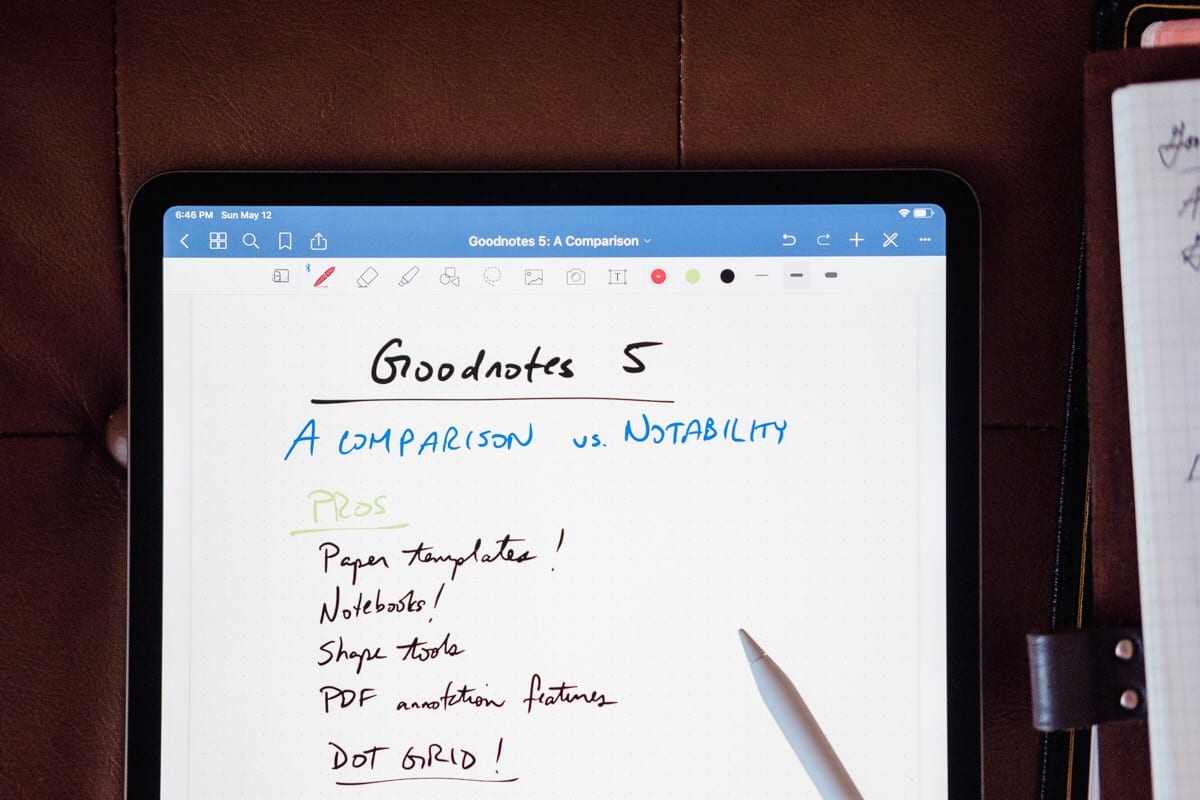 6:46 PM Sun May 12
Goodnotes 5: A Comparison
T
Goodnotes 5
A COMPARISON vs. NOTABILITY
PROS
Paper templates!
Notebooks!
Shape tools
PDF annotation features
DOT GRID!